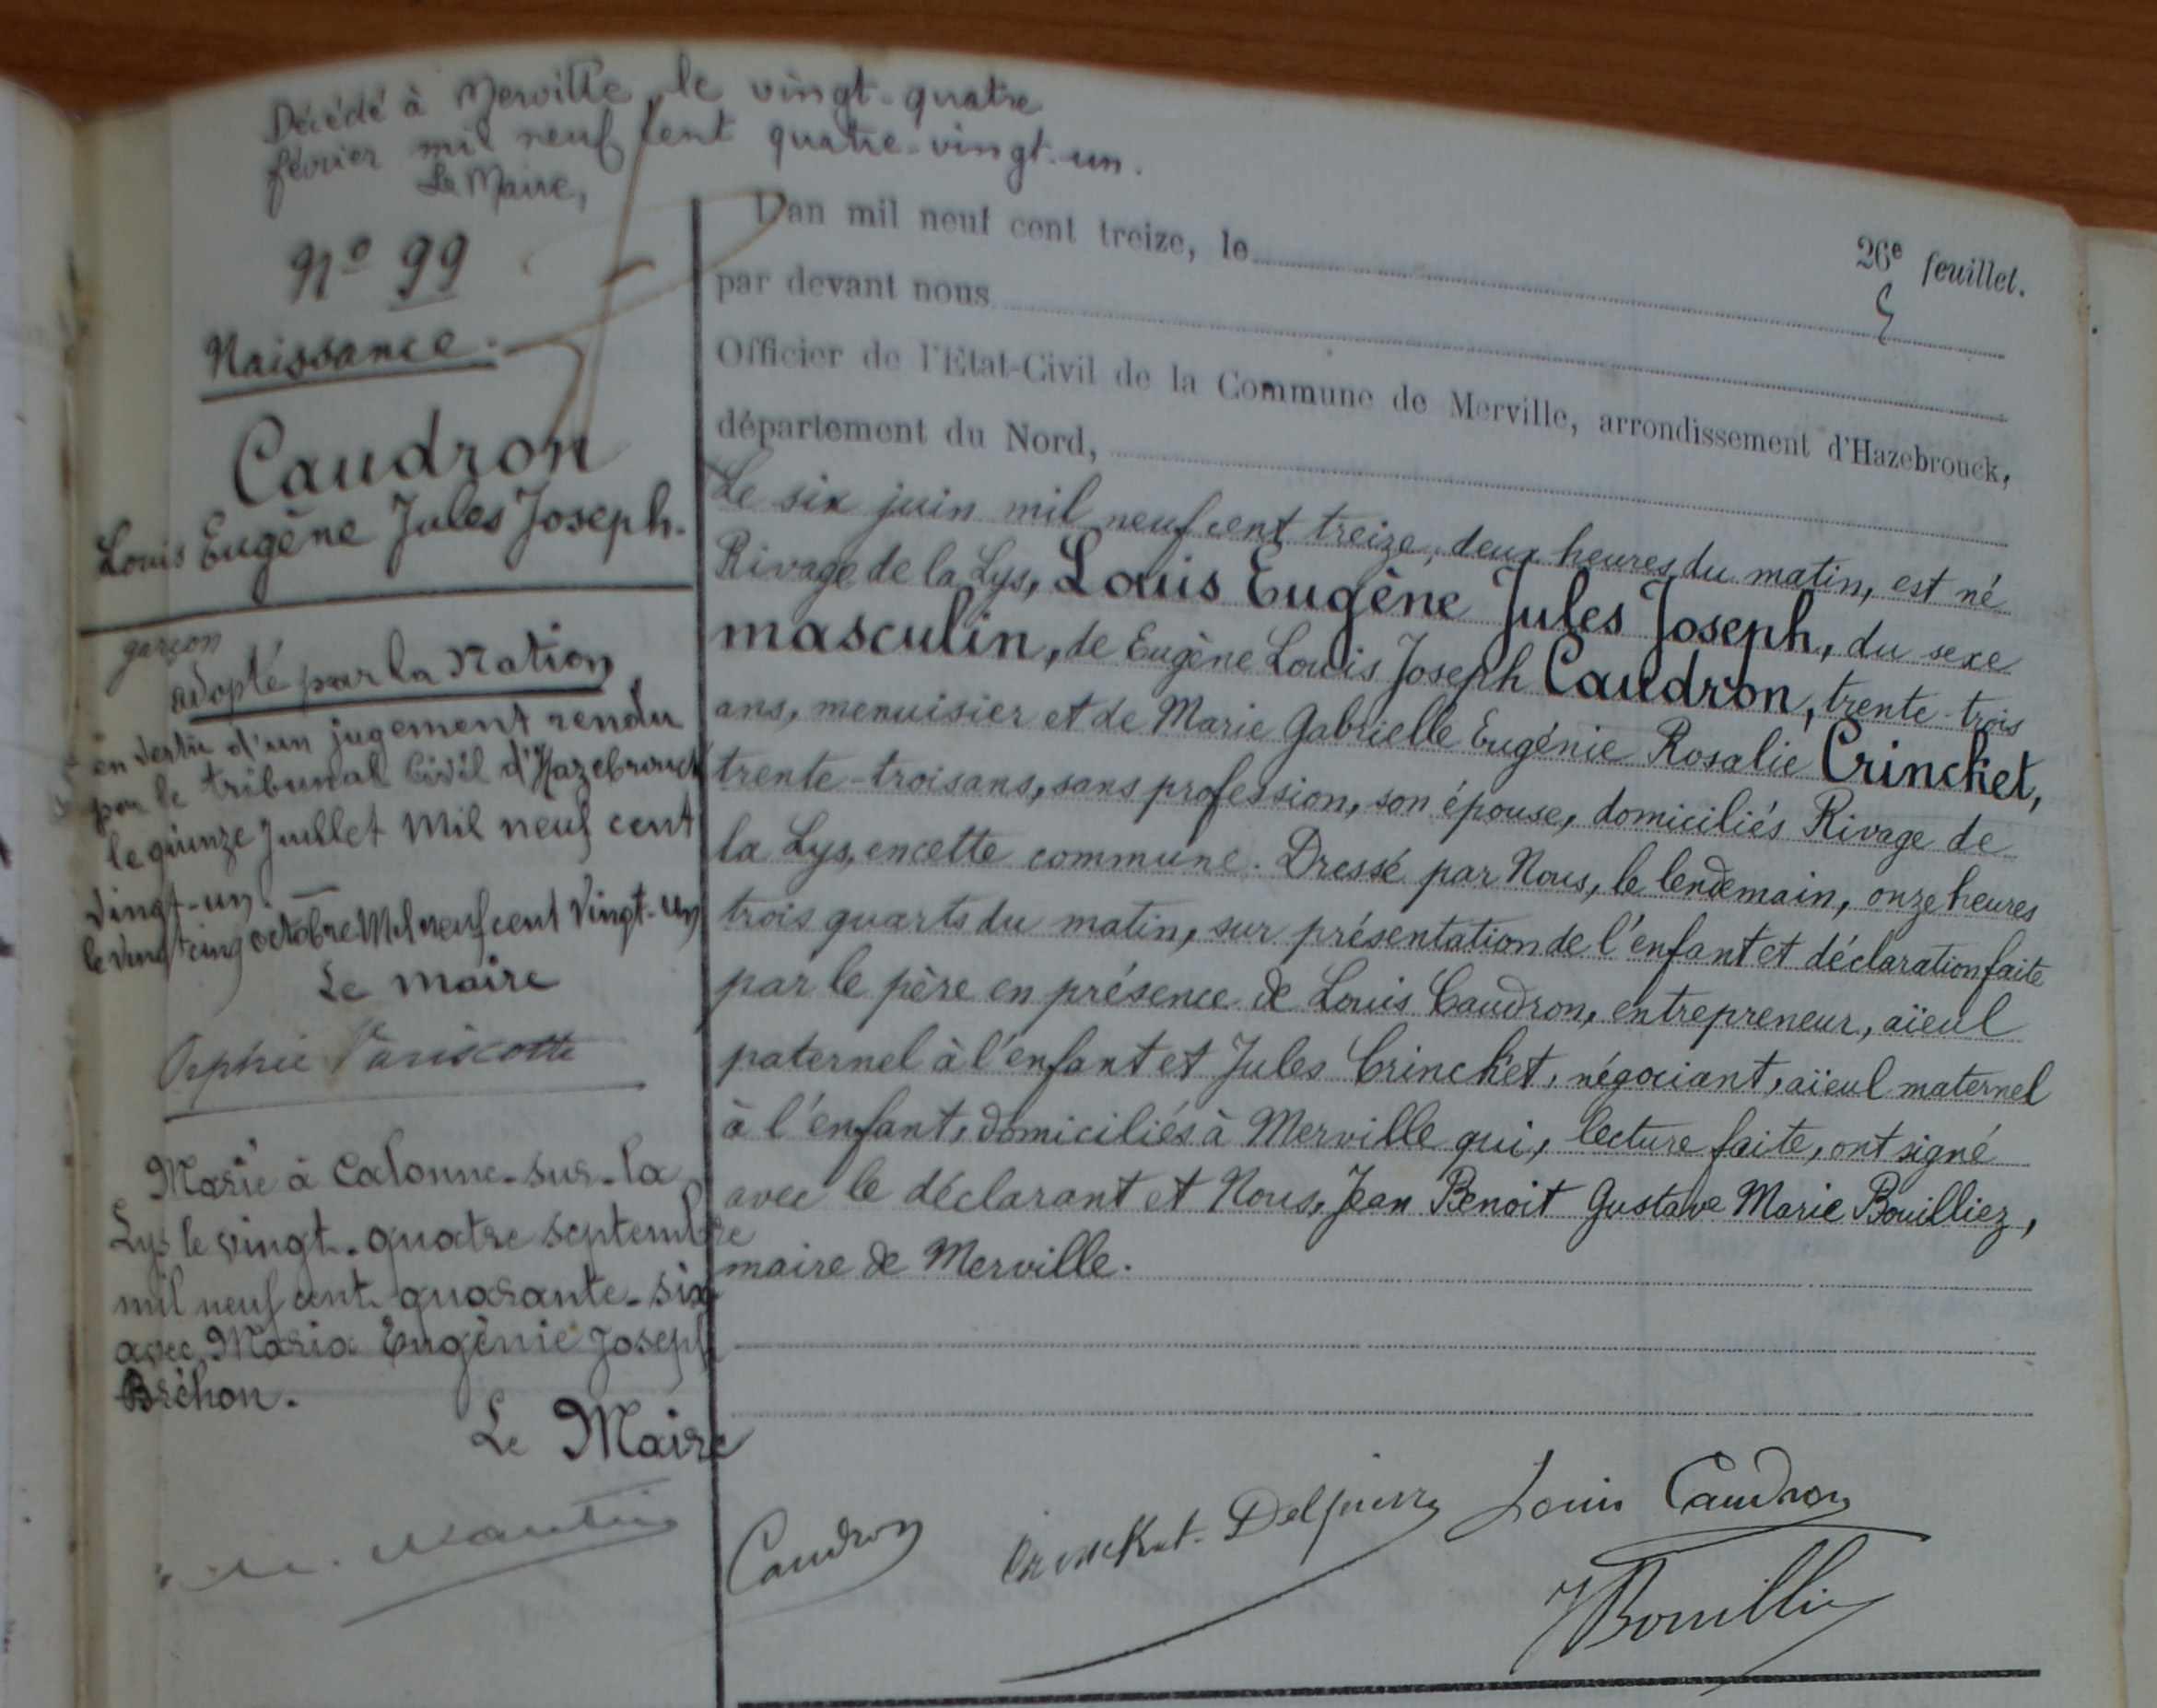 Décédé à Merville le vingt-quatre
février mil neuf cent quatre-vingt-un.
Le Maire,
N° 99
Naissance.
Caudron
Louis Eugène Jules Joseph.
garçon
adopté par la Nation
en vertu d'un jugement rendu
par le tribunal Civil d'Hazebrouck
le quinze Juillet Mil neuf cent
vingt-un. —
le vingt cinq octobre Mil neuf cent vingt-un
Le maire
Marié à Calonne-sur-la
Lys le vingt-quatre septembre
mil neuf cent quarante-six
avec Maria Eugènie Joseph
Bréhon.
Le Maire
26e feuillet.
L'an mil neuf cent treize, le
par devant nous
Officier de l'Etat-Civil de la Commune de Merville, arrondissement d'Hazebrouck,
département du Nord,
Le six juin mil neuf cent treize, deux heures du matin, est né
Rivage de la Lys, Louis Eugène Jules Joseph, du sexe
masculin, de Eugène Louis Joseph Caudron, trente-trois
ans, menuisier et de Marie Gabrielle Eugénie Rosalie Crincket,
trente-trois ans, sans profession, son épouse, domiciliés Rivage de
la Lys, en cette commune. Dressé par Nous, le lendemain, onze heures
trois quarts du matin, sur présentation de l'enfant et déclaration faite
par le père en présence de Louis Caudron, entrepreneur, aïeul
paternel à l'enfant et Jules Crincket, négociant, aïeul maternel
à l'enfant, domiciliés à Merville qui, lecture faite, ont signé
avec le déclarant et Nous, Jean Benoit Gustave Marie Bouilliez,
maire de Merville.
Caudron Crincket-Delpierre Louis Caudron
JBouilliez